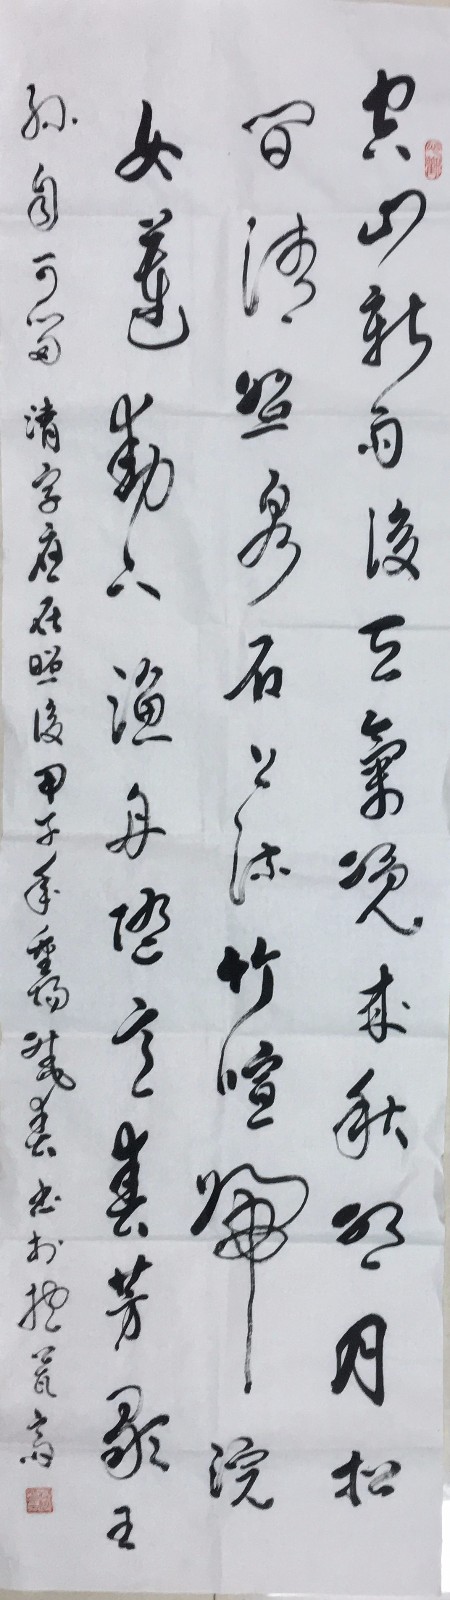 空山新雨後天氣晚來秋明月松
間清照泉石上流竹喧歸浣
女蓮動下漁舟隨意春芳歇王
孫自可留 清字應在照後 甲子年重陽 春书於 齋